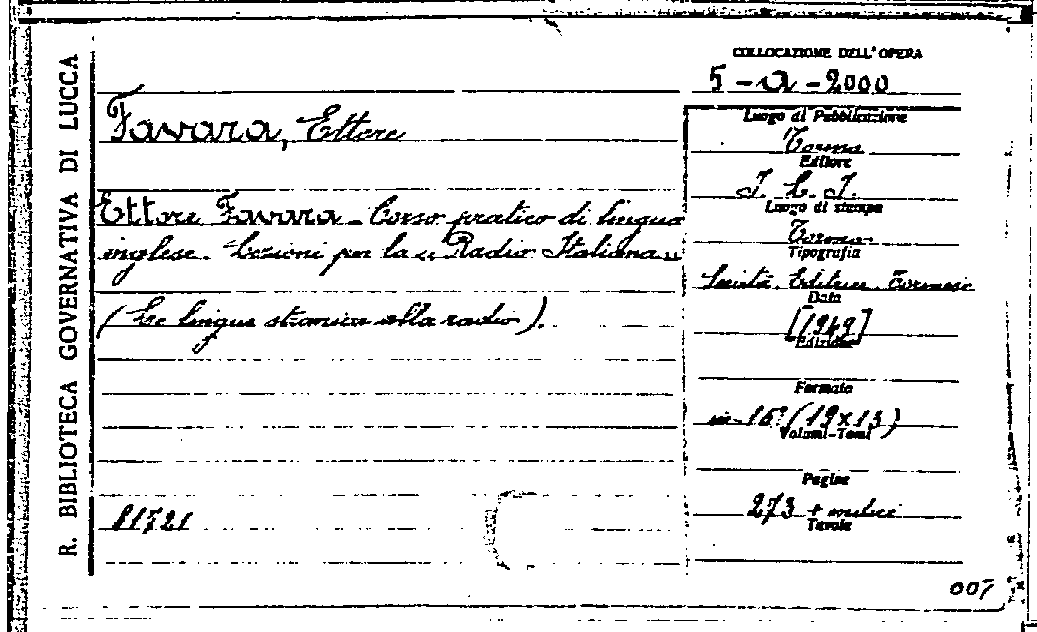 R. BIBLIOTECA GOVERNATIVA DI LUCCA
COLLOCAZIONE DELL'OPERA
5 - a - 2000
Favara, Ettore
Ettore Favara - Corso pratico di lingua
inglese. Lezioni per la « Radio Italiana »
(Le lingue straniere alla radio).
81721
Luogo di Pubblicazione
Torino
Editore
S. E. T.
Luogo di stampa
Torino
Tipografia
Società Editrice Torinese
Data
[1949]
Edizione
Formato
in-16° (19x13)
Volumi-Tomi
Pagine
273 + indice
Tavole
007